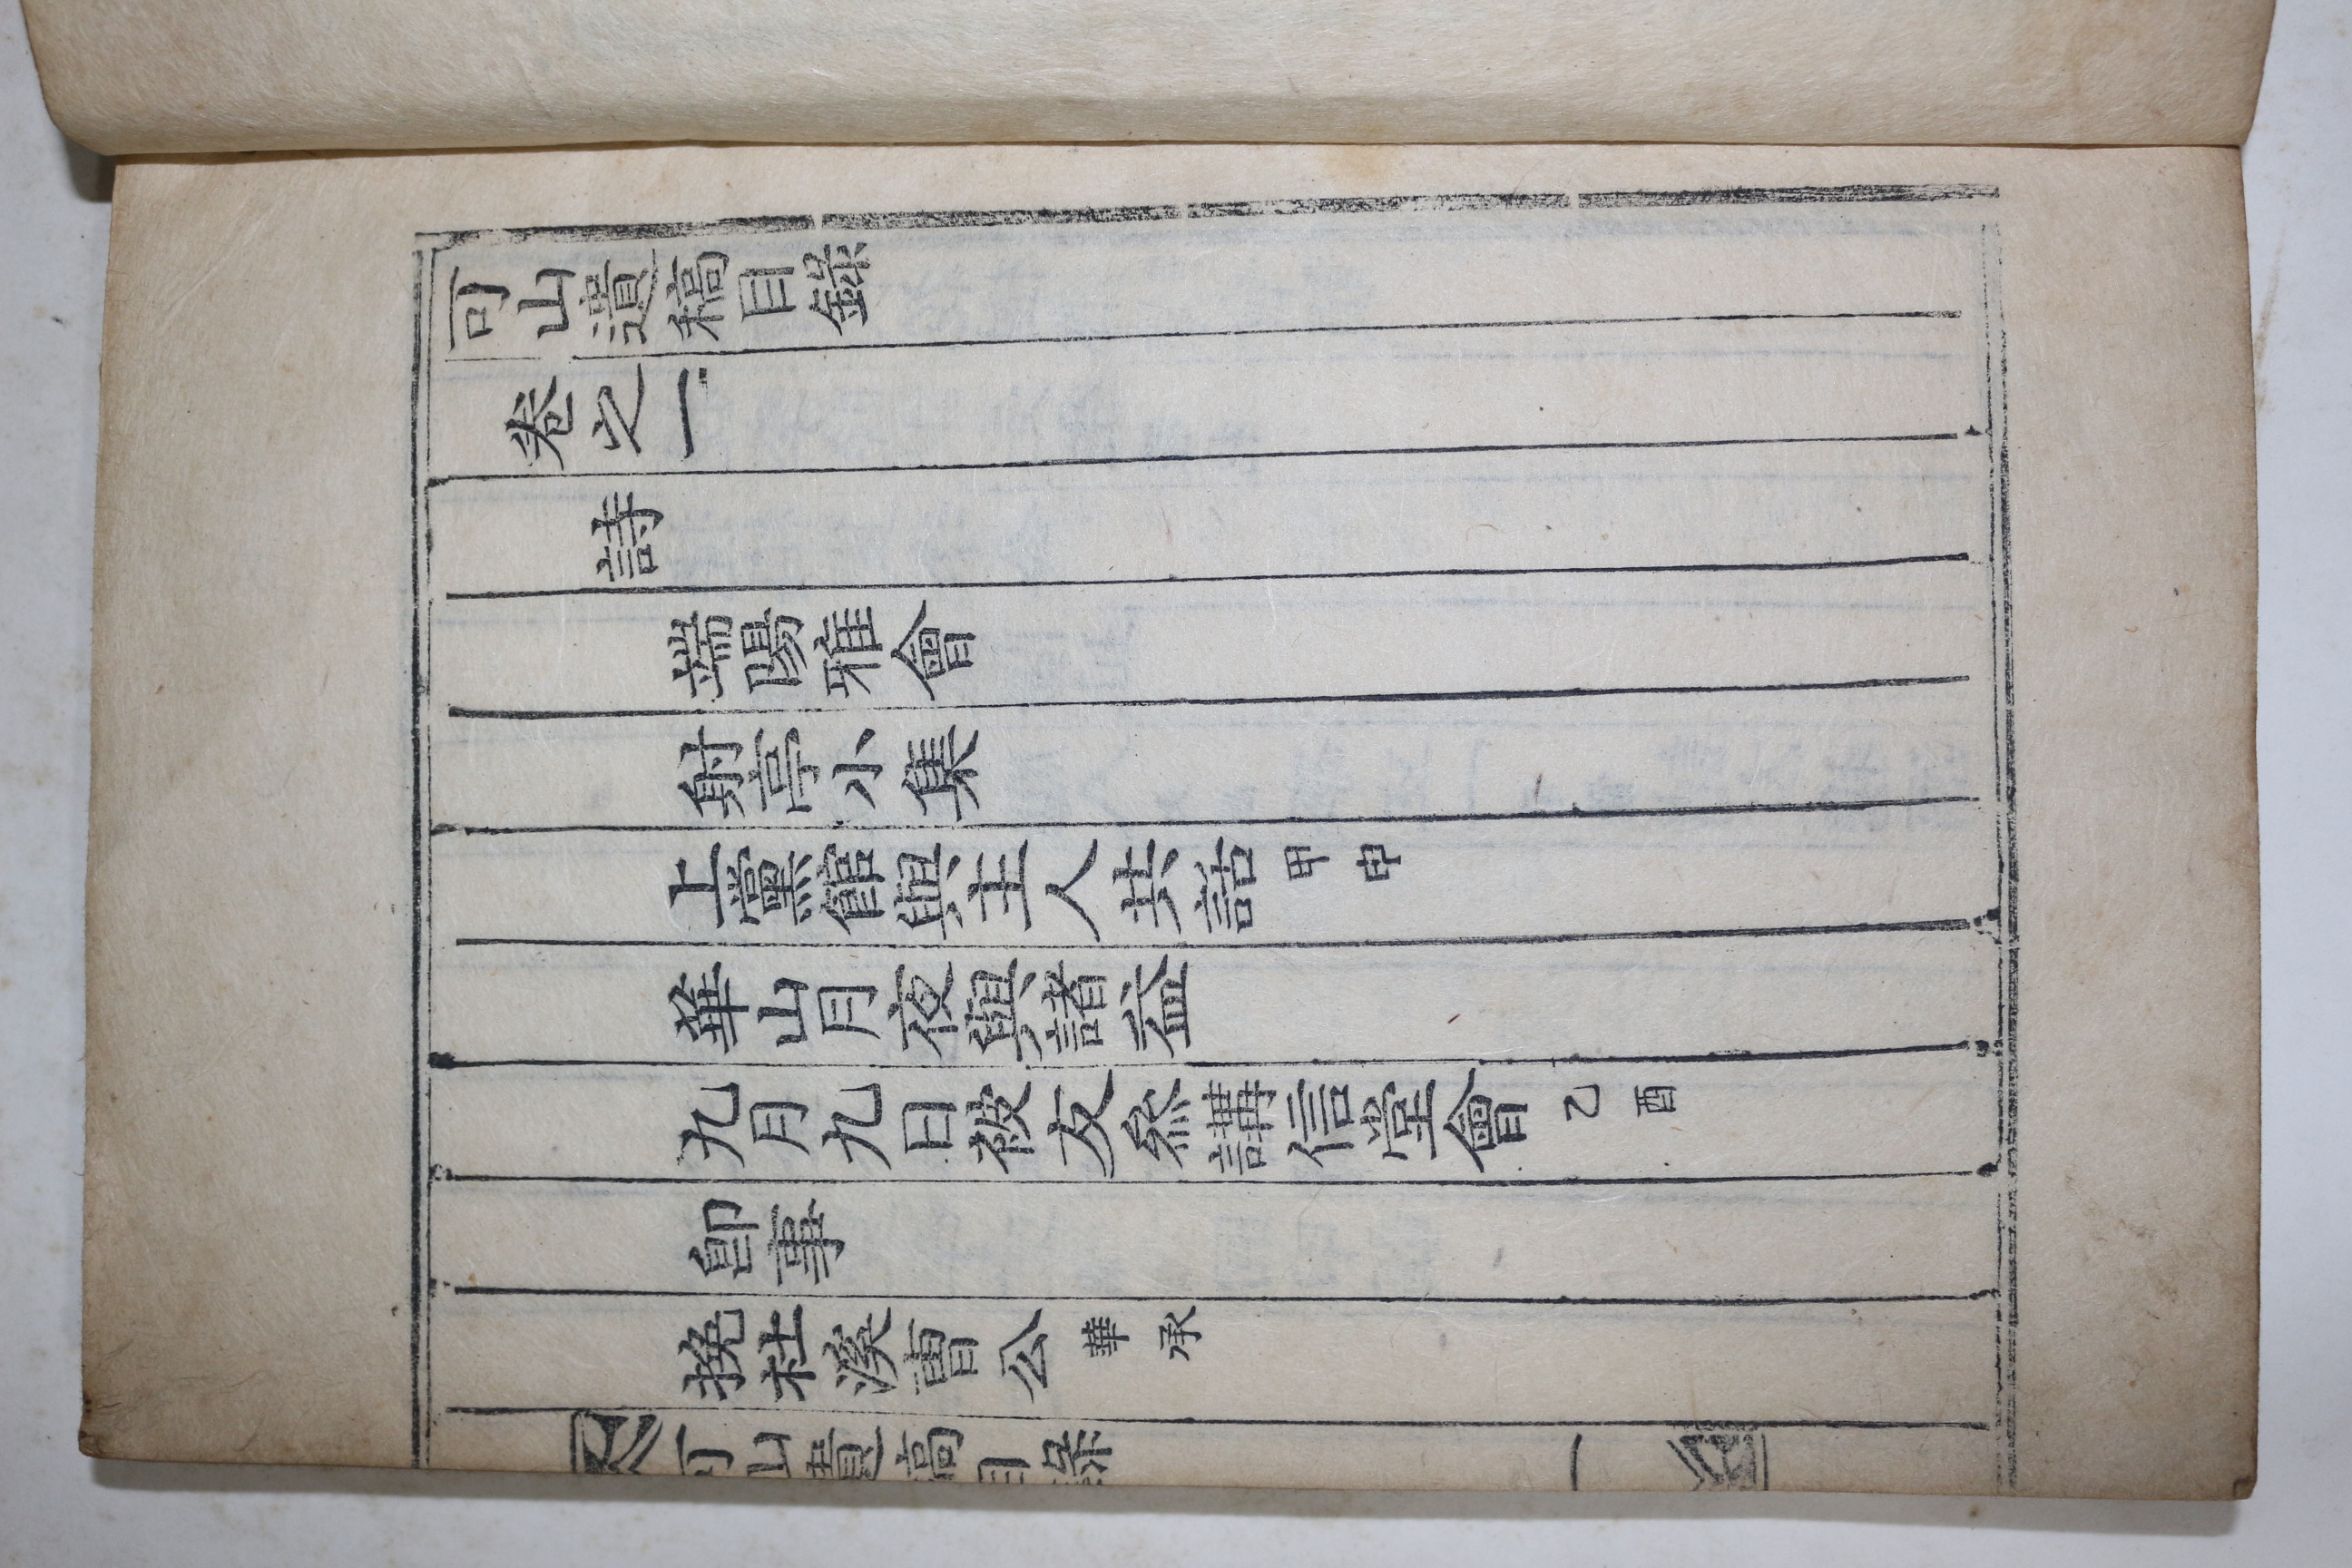 可山遺稿目錄
卷之一
詩
端陽雅會
射亭小集
上黨館與主人共話 甲申
華山月夜與諸益
九月九日被友叅講信堂會 乙酉
卽事
挽社溪曺公 華承
可山遺稿目錄 一